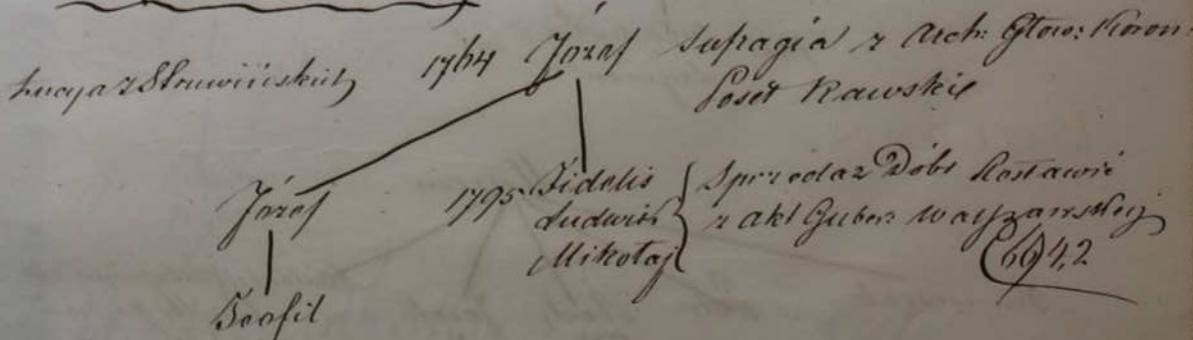 Lucya z Słruwińskich
1764 Józef Sufragia z Arch: Głow: Koron:
Poseł Rawskie
Józef
1795 Fidelis
Ludwik
Mikołaj
Sprzedaż Dóbr
z akt Guber: warszawskiej
Teofil